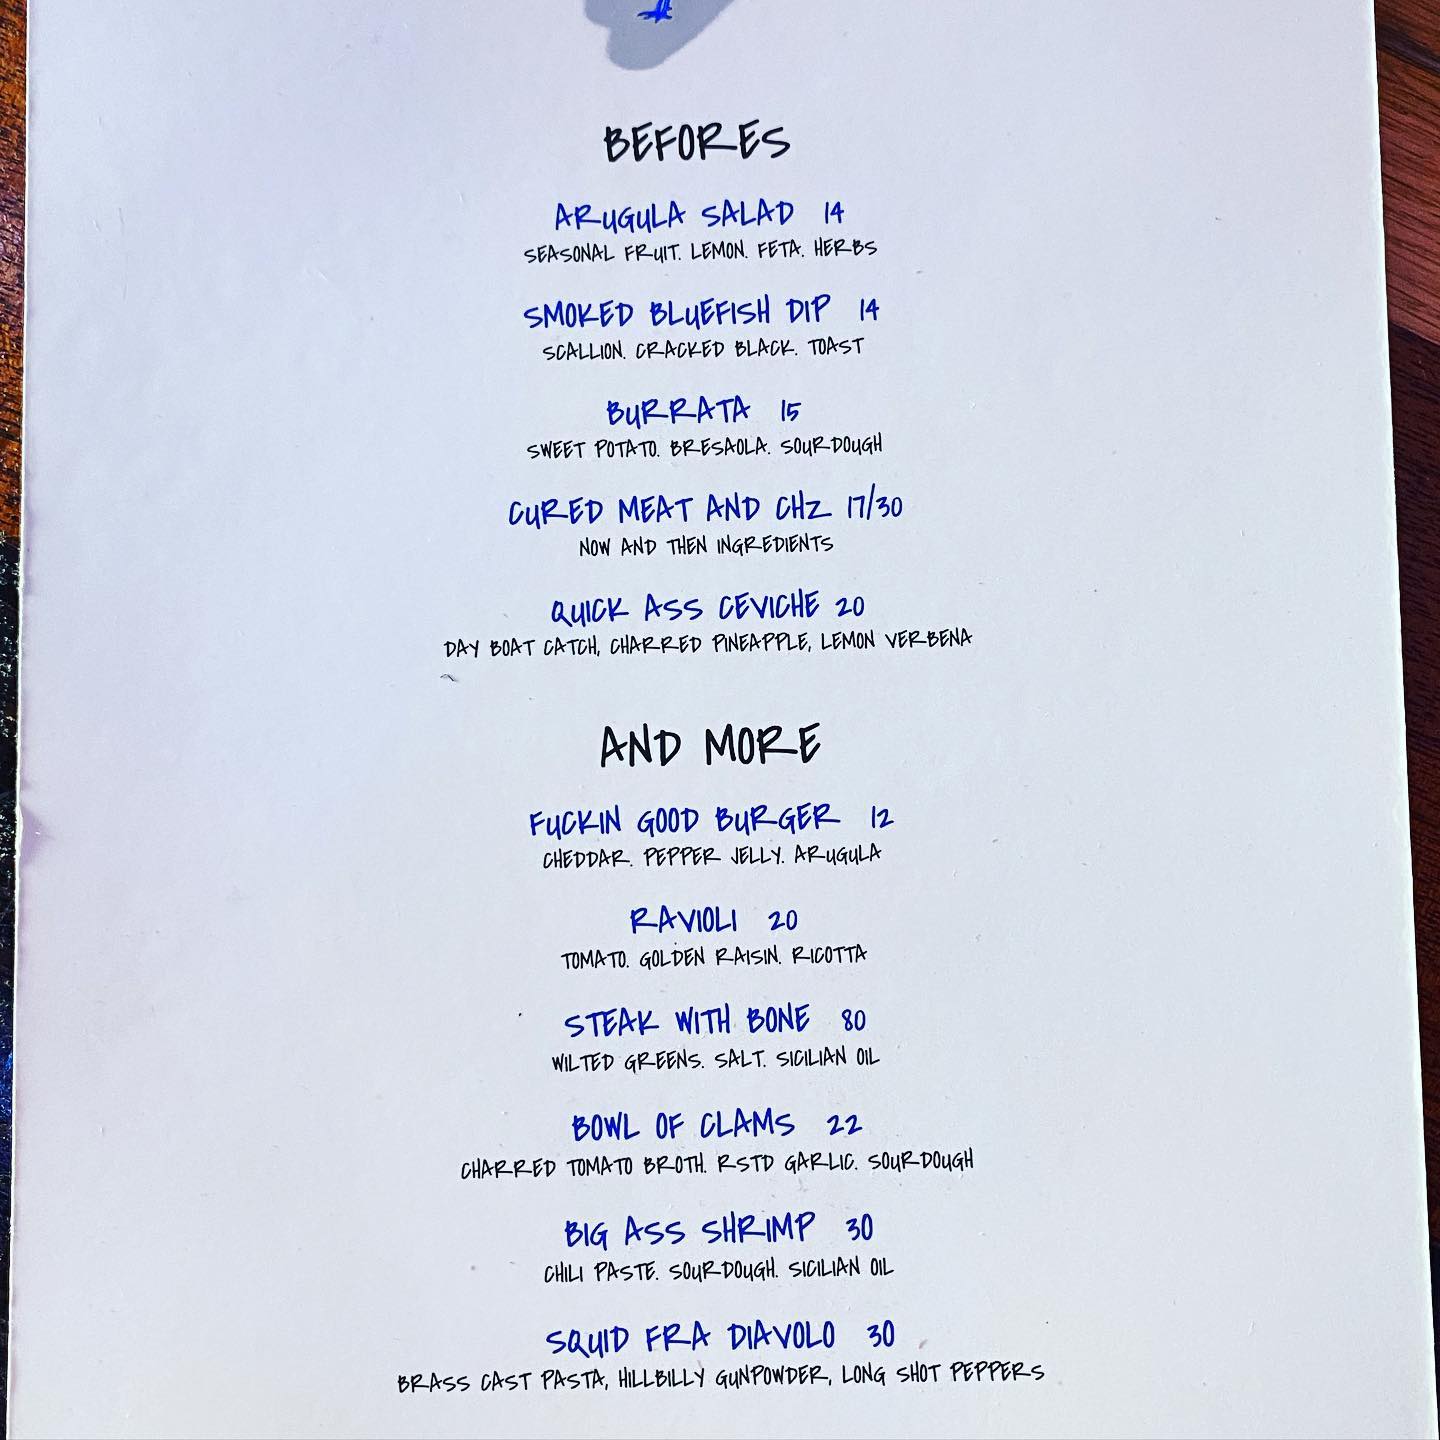 BEFORES
ARUGULA SALAD 14
SEASONAL FRUIT. LEMON. FETA. HERBS
SMOKED BLUEFISH DIP 14
SCALLION. CRACKED BLACK. TOAST
BURRATA 15
SWEET POTATO. BRESAOLA. SOURDOUGH
CURED MEAT AND CHZ 17/30
NOW AND THEN INGREDIENTS
QUICK ASS CEVICHE 20
DAY BOAT CATCH, CHARRED PINEAPPLE, LEMON VERBENA
AND MORE
FUCKIN GOOD BURGER 12
CHEDDAR. PEPPER JELLY. ARUGULA
RAVIOLI 20
TOMATO. GOLDEN RAISIN. RICOTTA
STEAK WITH BONE 80
WILTED GREENS. SALT. SICILIAN OIL
BOWL OF CLAMS 22
CHARRED TOMATO BROTH. RSTD GARLIC. SOURDOUGH
BIG ASS SHRIMP 30
CHILI PASTE. SOURDOUGH. SICILIAN OIL
SQUID FRA DIAVOLO 30
BRASS CAST PASTA, HILLBILLY GUNPOWDER, LONG SHOT PEPPERS